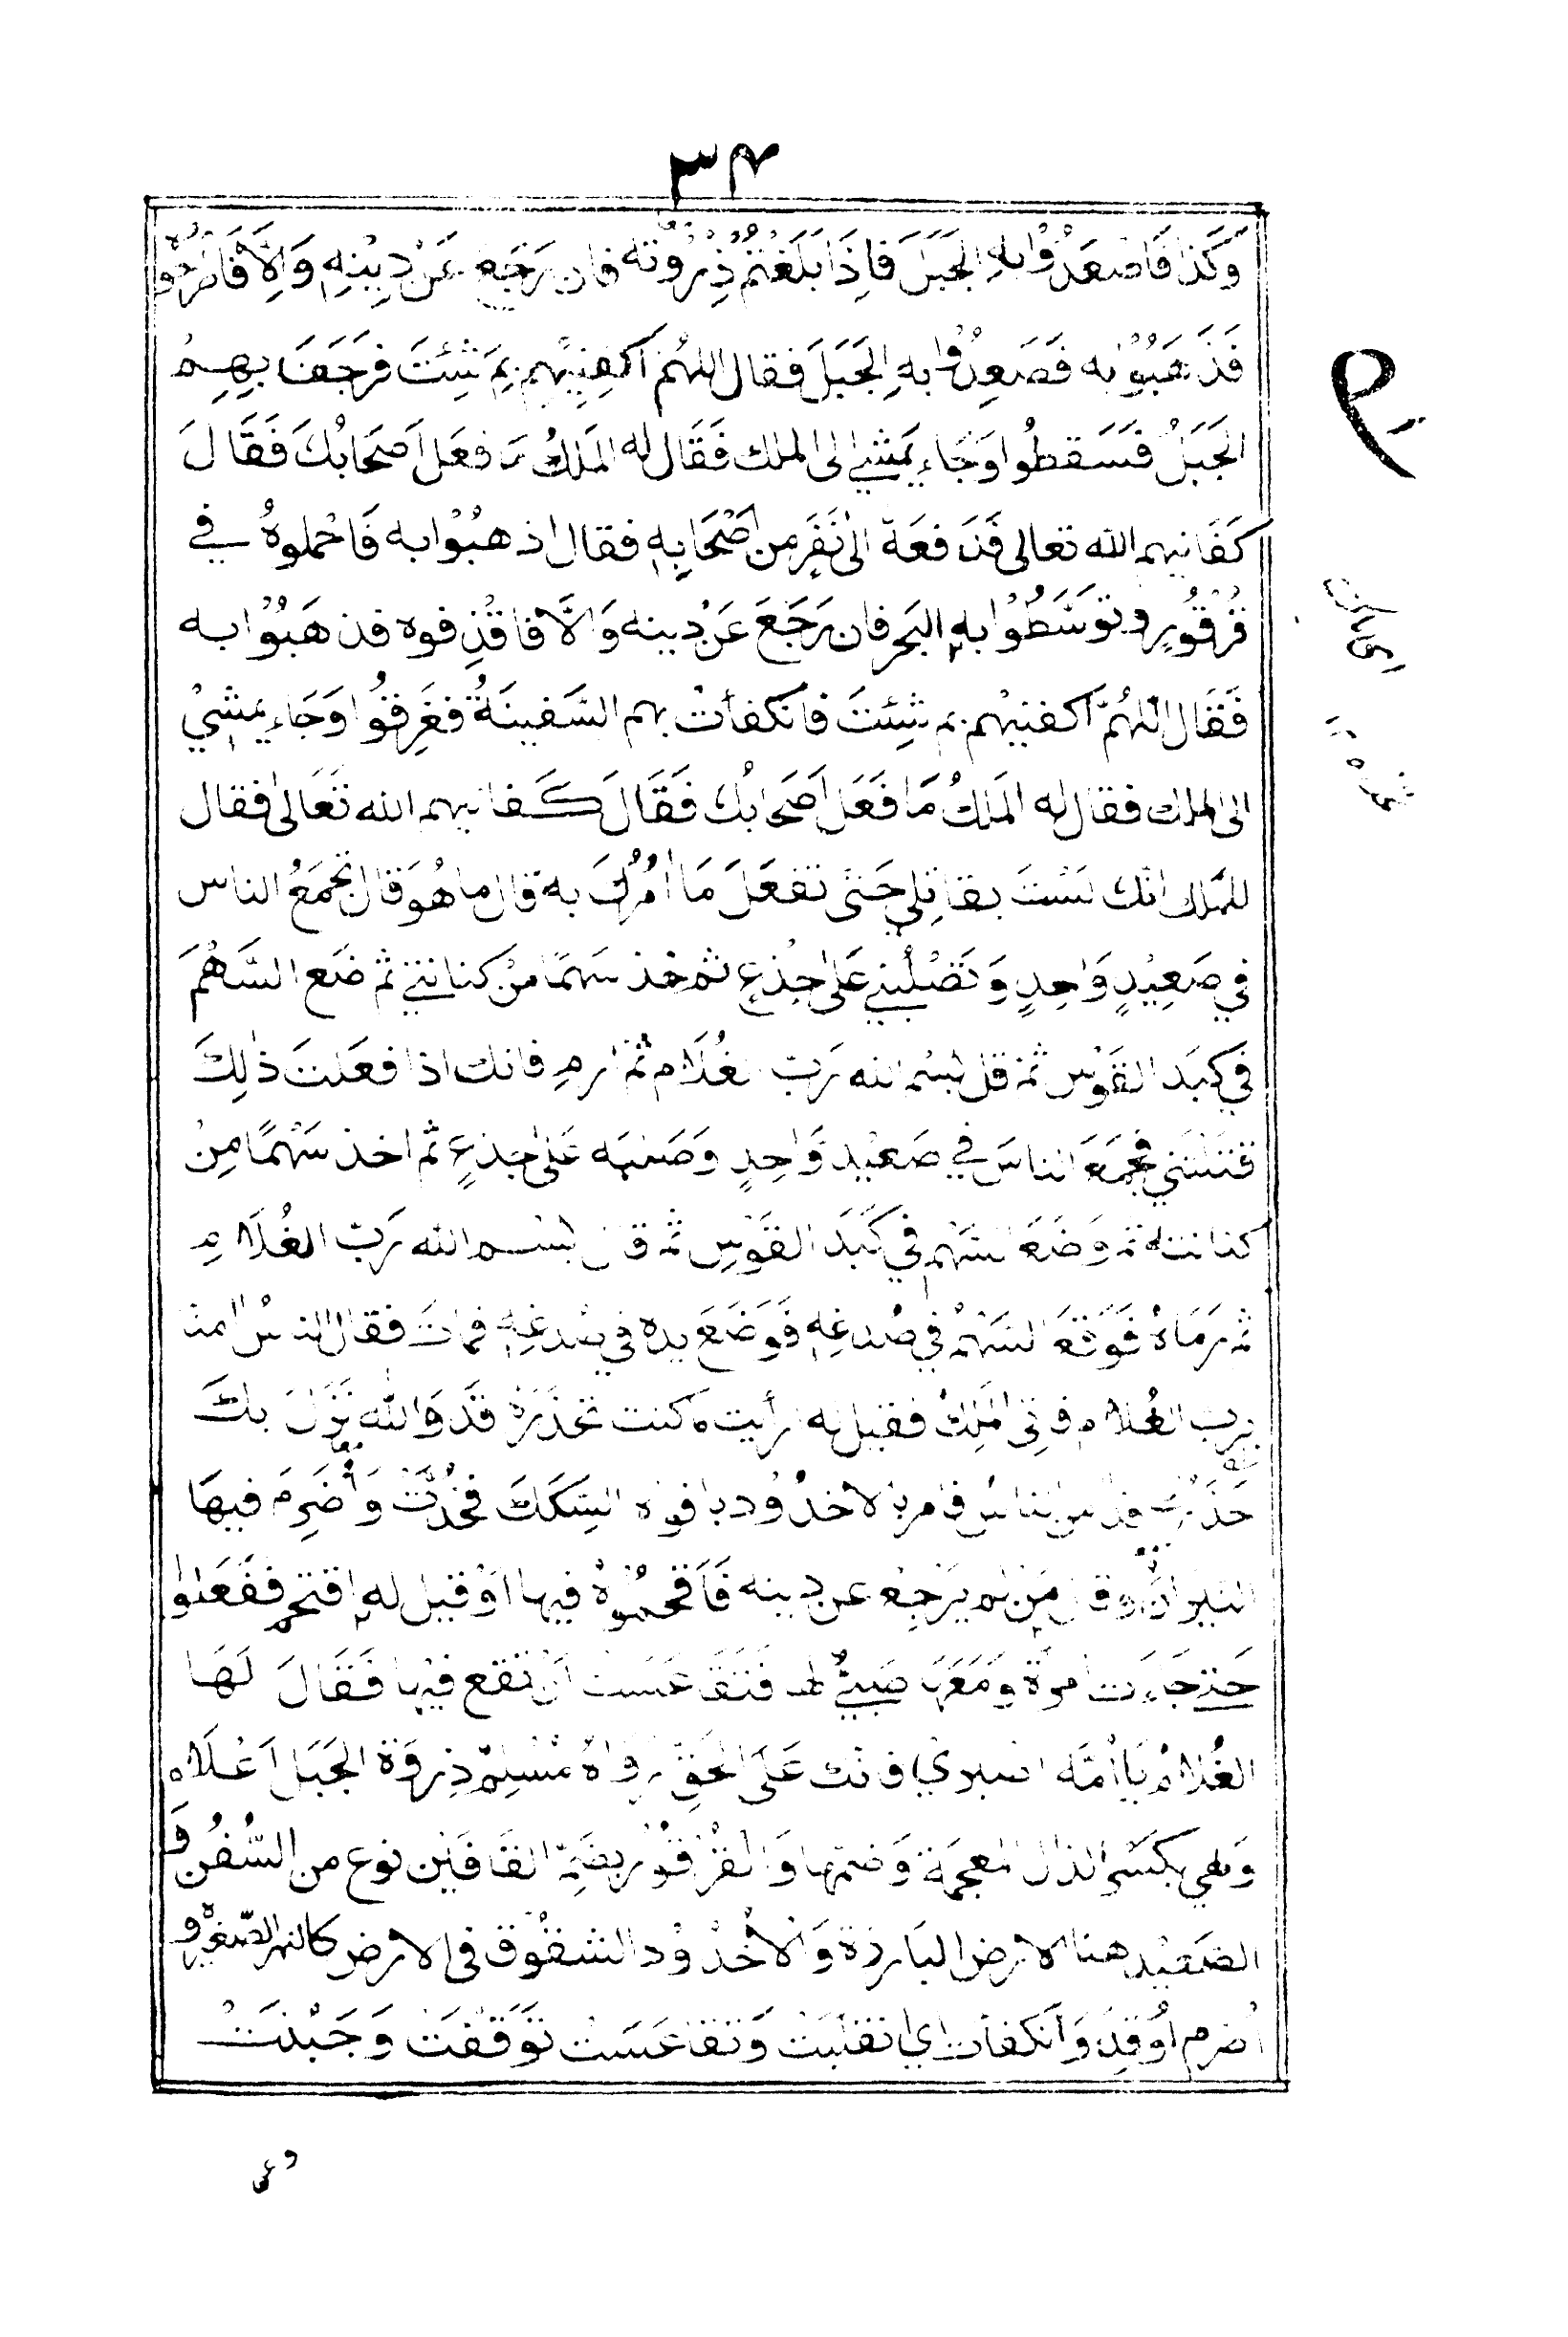 ٣٤
وَكَذَا فَاصْعَدُوْا بِهِ الجَبَلَ فَاِذَا بَلَغْتُمْ ذِرُوْتَه فان رَجَعَ عَنْ دِيِنْهِ وَاِلَّا فَاطْرَحُوهُ
فَذَهَبُوْا به فَصَعِدُوْا بِهِ الجَبَلَ فقال اللهُم اَكْفِنِيْهِم بِمَ شِئتَ فَرَجَفَ بِهِمُ
الجَبَلُ فَسَقَطُوا وَجَاءِ يَمشي الى الملك فَقَال له المَلِكُ مَا فعَل اَصحَابُكَ فَقَالَ
كَفَانيهم الله تعالى فَدَفعَهُ الىٰ نَفَرٍ مِن اَصْحَابِهِ فقال اذهبُوْا به فَاحْملوهُ في
قُرْقُوْرٍ وتَوَسَّطُوْا بِهِ البَحر فان رَجَعَ عَنْ دينه وَالَّا فاقْذِفوه فذهَبُوْا به
فَقَال اللهُمَّ اَكفنيْهم بِم شِئتَ فانكفأتْ بهم السَّفينَةُ فغَرِقُوا وَجَاءِ يمشيْ
الى الملك فقال له المَلكُ مَا فَعَل اَصحَابُك فَقَالَ كَفانيهم الله تَعَالىٰ فقال
للمَلك انّك لَسْتَ بقاتِلي حَتّى تفعَلَ مَا اٰمُرُكَ بهِ قال ما هُوَ قال تجمَعُ الناس
في صَعِيْدٍ وَاحِدٍ وَتَصْلُبُني عَلىٰ جِذعٍ ثم خذ سَهمًا مِنْ كنانتي ثم ضَع السَّهْمَ
في كَبَد القَوْس ثم قل بِسْم الله رَبّ الغُلَام ثمّ ارمِ فانك اذا فعَلتَ ذٰلِكَ
قتلتَني فجمَعَ الناسَ في صَعيْدٍ وَاحِدٍ وَصَلبَه عَلىٰ جِذعٍ ثم اخذ سَهْمًا مِنْ
كنانته ثم وَضَعَ السَهْم في كَبَدَ القَوْسِ ثم قال بسم الله رَبّ الغُلَامِ
ثم رَمَاهُ فَوَقَعَ السَهْمُ في صُدغِهِ فَوَضَعَ يده في صُدغِهِ فمات فقال الناسُ اٰمنا
برب الغُلام فاتي المَلِكُ فقيل له ارأيت ما كنت تحذَرُ قَد وَالله نَزَلَ بكَ
حَذَرُكَ قد اٰمن الناسُ فامر بالاخدُوْد بافواه السِكَكَ فَخُدَّتْ وَأُضرِمَ فيهَا
النيرانُ وقال مَن لم يَرجِعْ عن دينه فَاَقحمُوْهُ فيها اَوْ قيل له اِقتحم ففَعَلوا
حَتى جَاءَت امرَأة وَمَعَهَا صَبيٌ لها فَتَقَاعَسَت اَن تقع فيْها فَقَالَ لهَا
الغُلامُ يَا اُمَّه اصبري فانك عَلَى الحَقّ رَوَاهُ مُسْلِم ذِروَة الجَبَل اَعْلَاه
وَهي بكَسْر الذال المعجمة وَضمّها وَالقُرْقُوْر بضَمّ القَافَيْن نوع من السُّفُن وَ
الصَعيْد هنا الارض البَارزة وَالاُخدُوْد الشقوْق في الارض كالنهر الصَّغير و
اُضرِم اُوْقِدَ وَانكفأت اي انقلبَتْ وَتقاعَسَت تَوَقفَتْ وَجَبُنَتْ